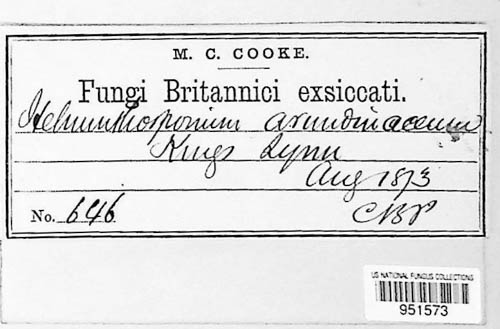 M. C. COOKE.
Fungi Britannici exsiccati.
Helminthosporium arundinaceum
Kings Lynn
Aug 1873
No. 646
CBP
US NATIONAL FUNGUS COLLECTIONS
951573